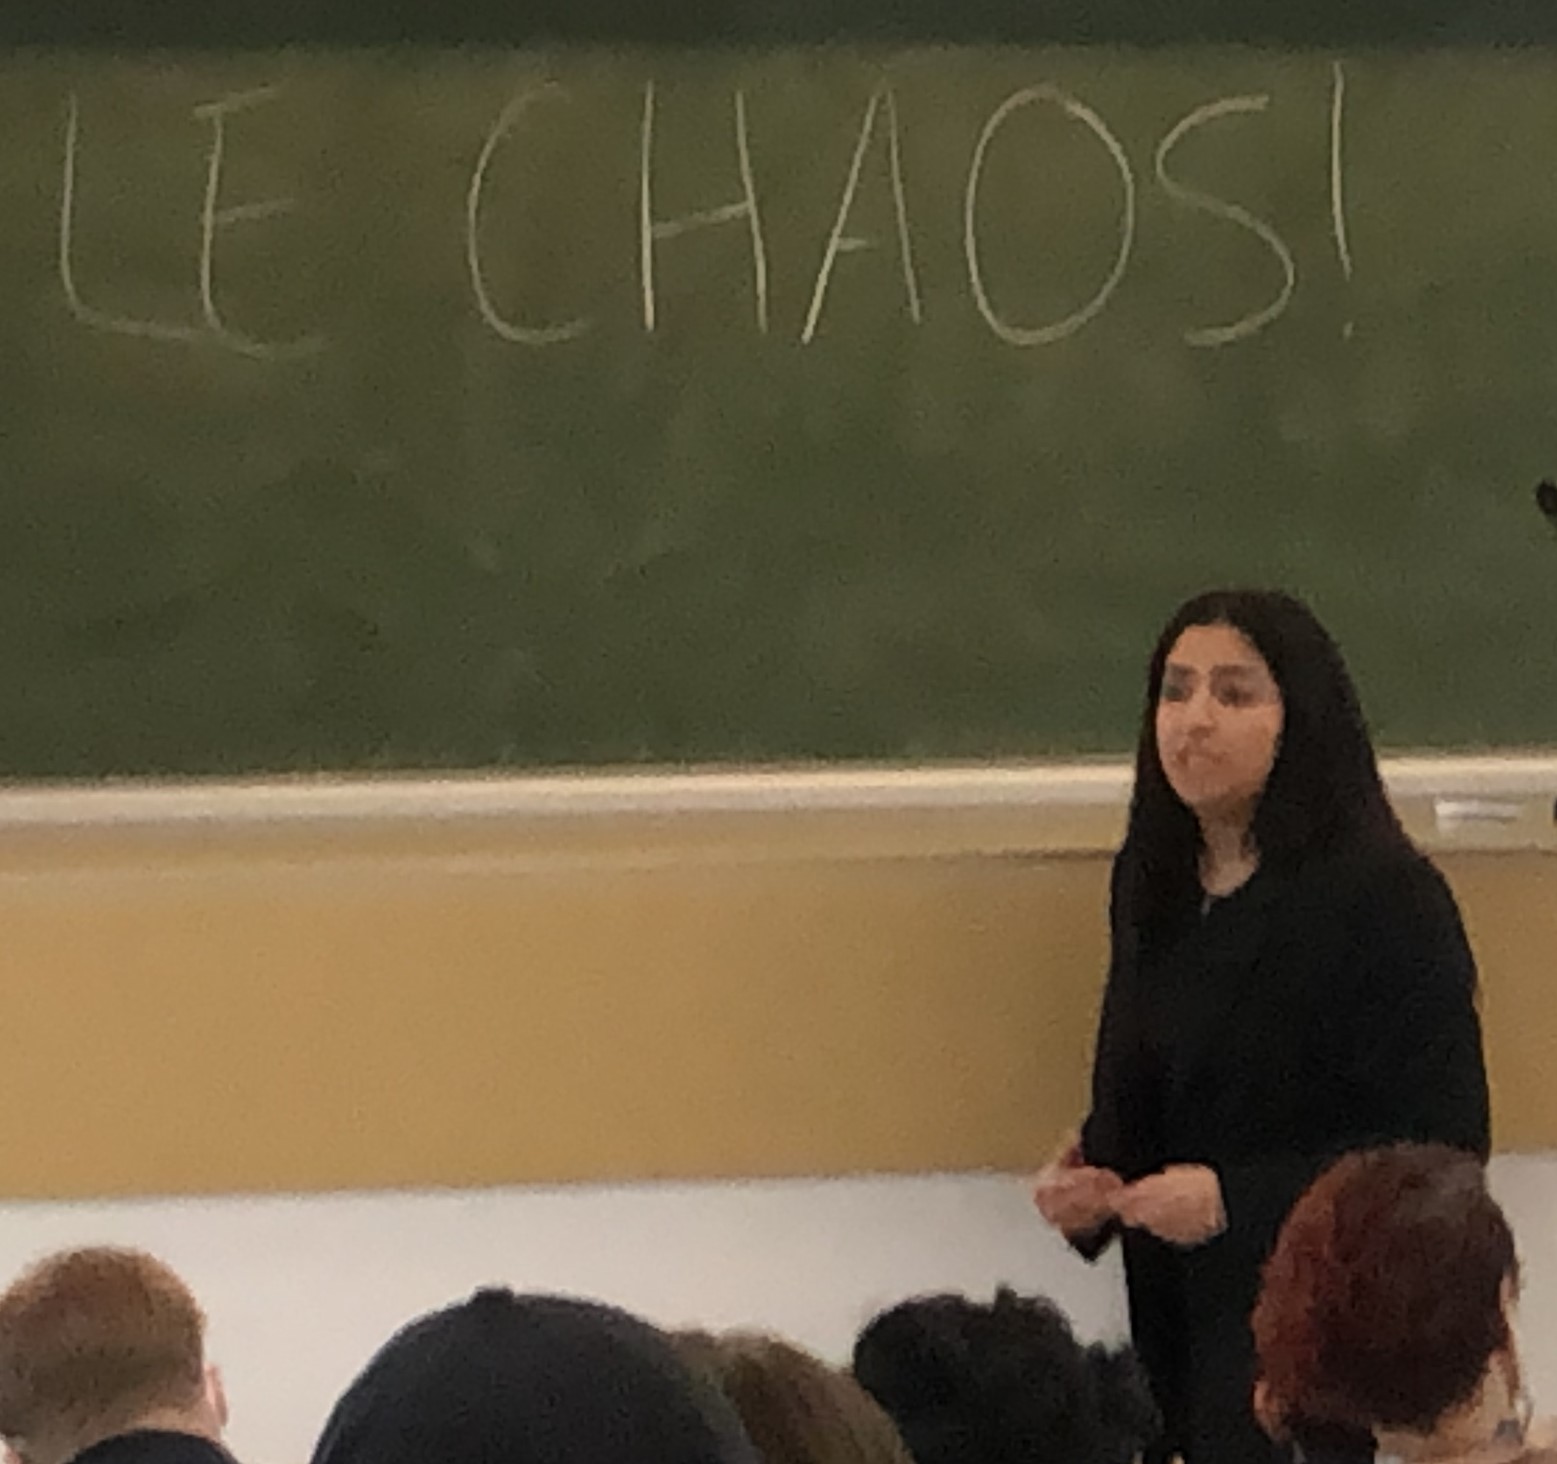 LE CHAOS!